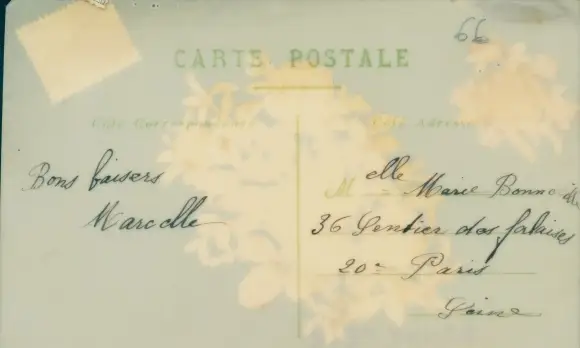 66
CARTE POSTALE
Côté Correspondance
Côté Adresse
Bons baisers
Marcelle
M elle Marie
36 Sentier des falaises
20e Paris
Seine